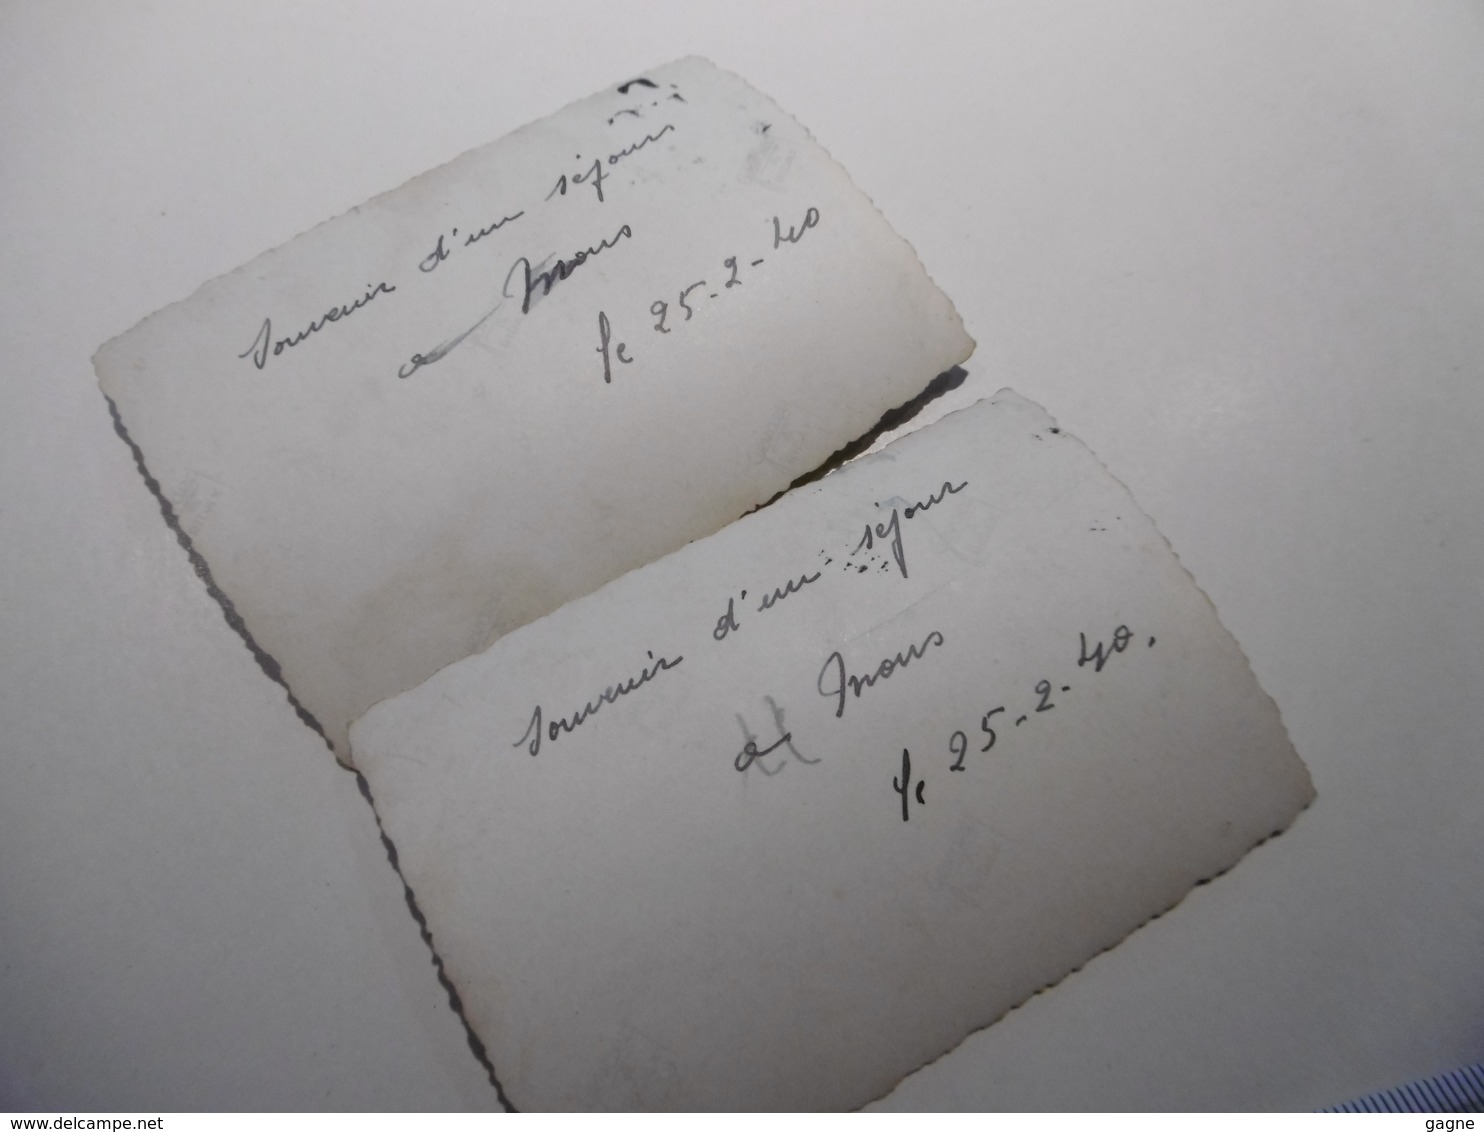 Souvenir d'un séjour
a Mons
le 25-2-40
Souvenir d'un séjour
a Mons
le 25-2-40.
delcampe.net
gagne